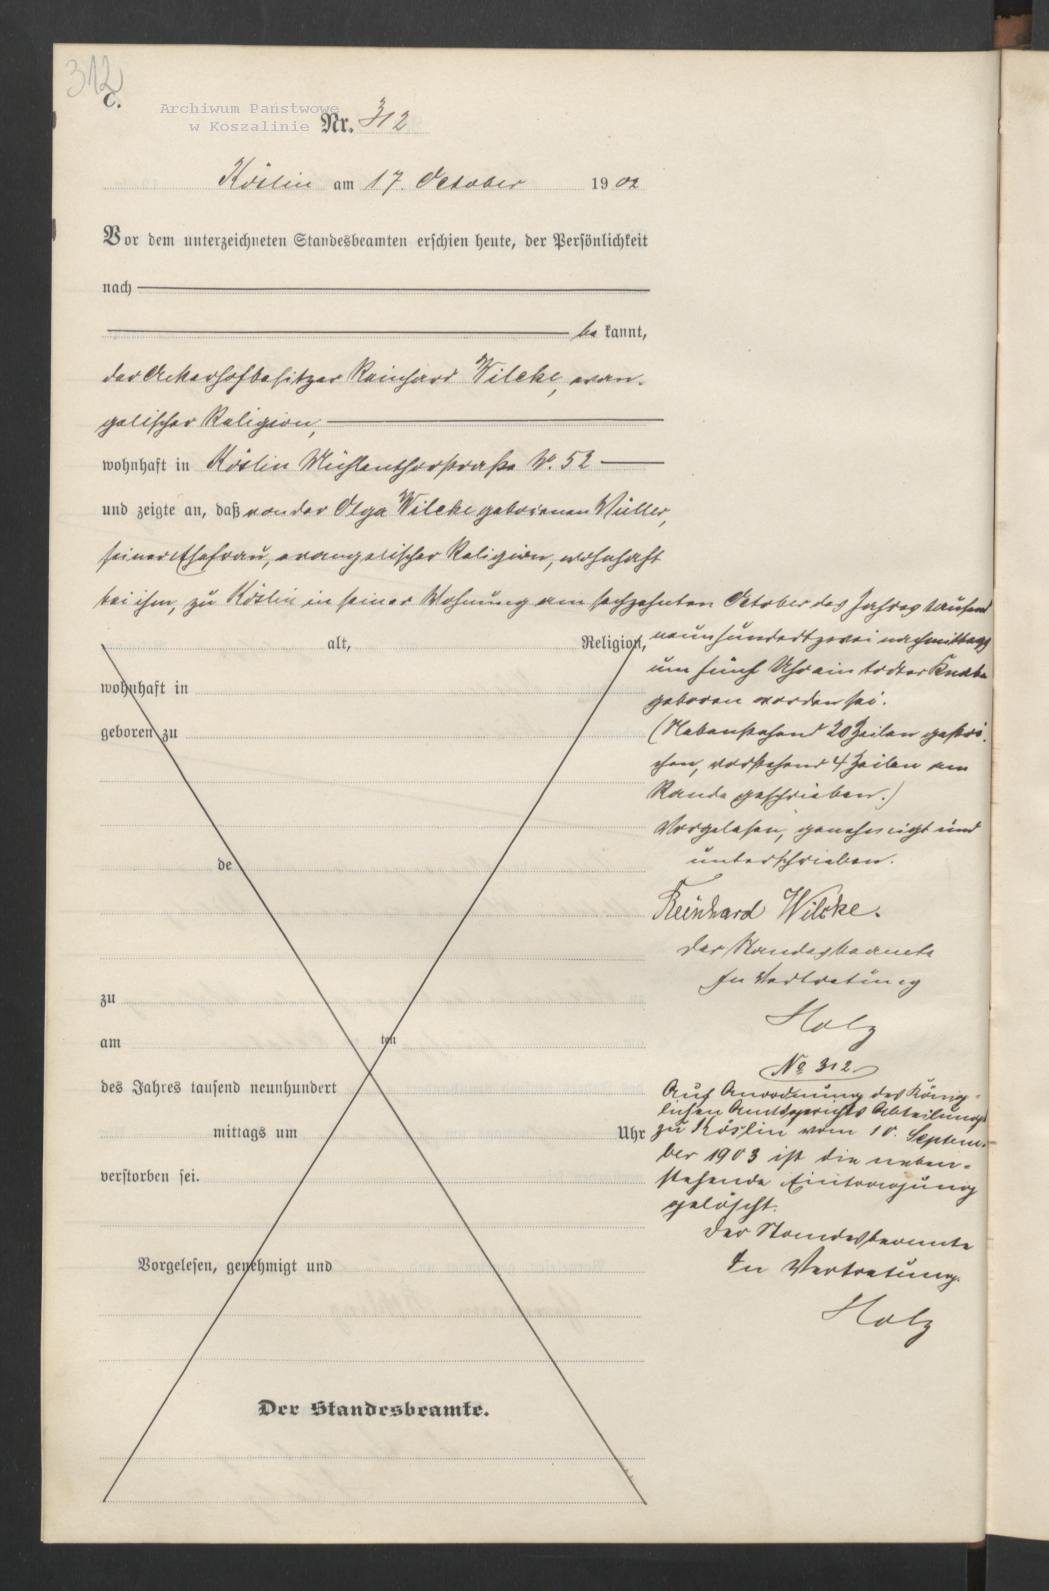 312
C.
Archiwum Państwowe
w Koszalinie
Nr. 312
Köslin am 17. October 1902
Vor dem unterzeichneten Standesbeamten erschien heute, der Persönlichkeit
nach
be kannt,
der Ackerhofbesitzer Reinhard Wilcke, evan-
gelischer Religion,
wohnhaft in Köslin Mühlenthorstraße No. 52
und zeigte an, daß von der Olga Wilcke geborenen Müller,
seiner Ehefrau, evangelischer Religion, wohnhaft
bei ihm, zu Köslin in seiner Wohnung am sechzehnten October des Jahres tausend
neunhundertzwei nachmittags
um fünf Uhr ein todter Knabe
geboren worden sei.
(Nebenstehend 20 Zeilen gestri-
chen, vorstehend 4 Zeilen am
Rande geschrieben.)
Vorgelesen, genehmigt und
unterschrieben.
Reinhard Wilcke.
Der Standesbeamte
In Vertretung
Holz
alt, Religion,
wohnhaft in
geboren zu
de
zu
am ten
des Jahres tausend neunhundert
mittags um Uhr
verstorben sei.
Vorgelesen, genehmigt und
Der Standesbeamte.
No 312
Auf Anordnung des König-
lichen Amtsgerichts Abteilung
zu Köslin vom 10. Septem-
ber 1903 ist die neben-
stehende Eintragung
gelöscht.
Der Standesbeamte
In Vertretung.
Holz